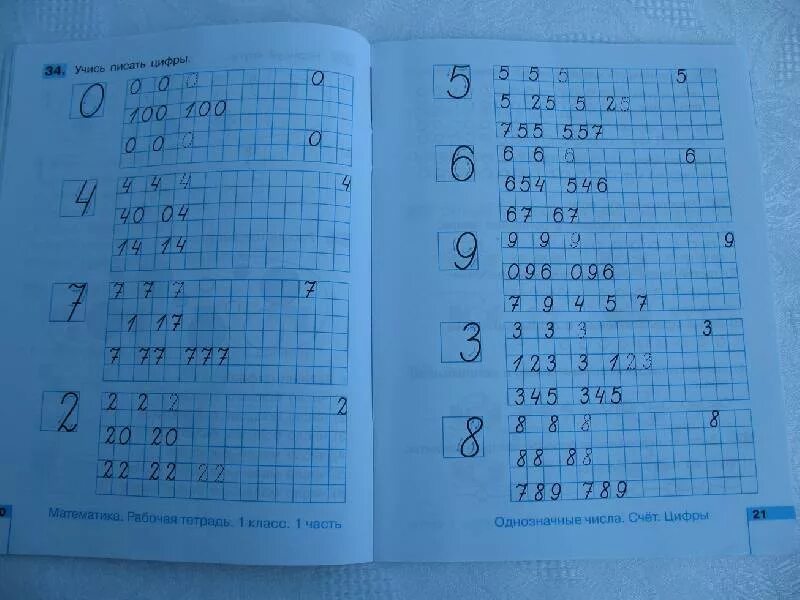 34. Учись писать цифры.
0
0 0 0 0
100 100
0 0 0 0
4
4 4 4 4
40 04
14 14
7
7 7 7 7
1 17
7 77 777
2
2 2 2 2
20 20
22 22 22
Математика. Рабочая тетрадь. 1 класс. 1 часть
5
5 5 5 5
5 25 5 25
755 557
6
6 6 6 6
654 546
67 67
9
9 9 9 9
096 096
7 9 4 5 7
3
3 3 3 3
123 3 123
345 345
8
8 8 8 8
88 88
789 789
Однозначные числа. Счёт. Цифры 21